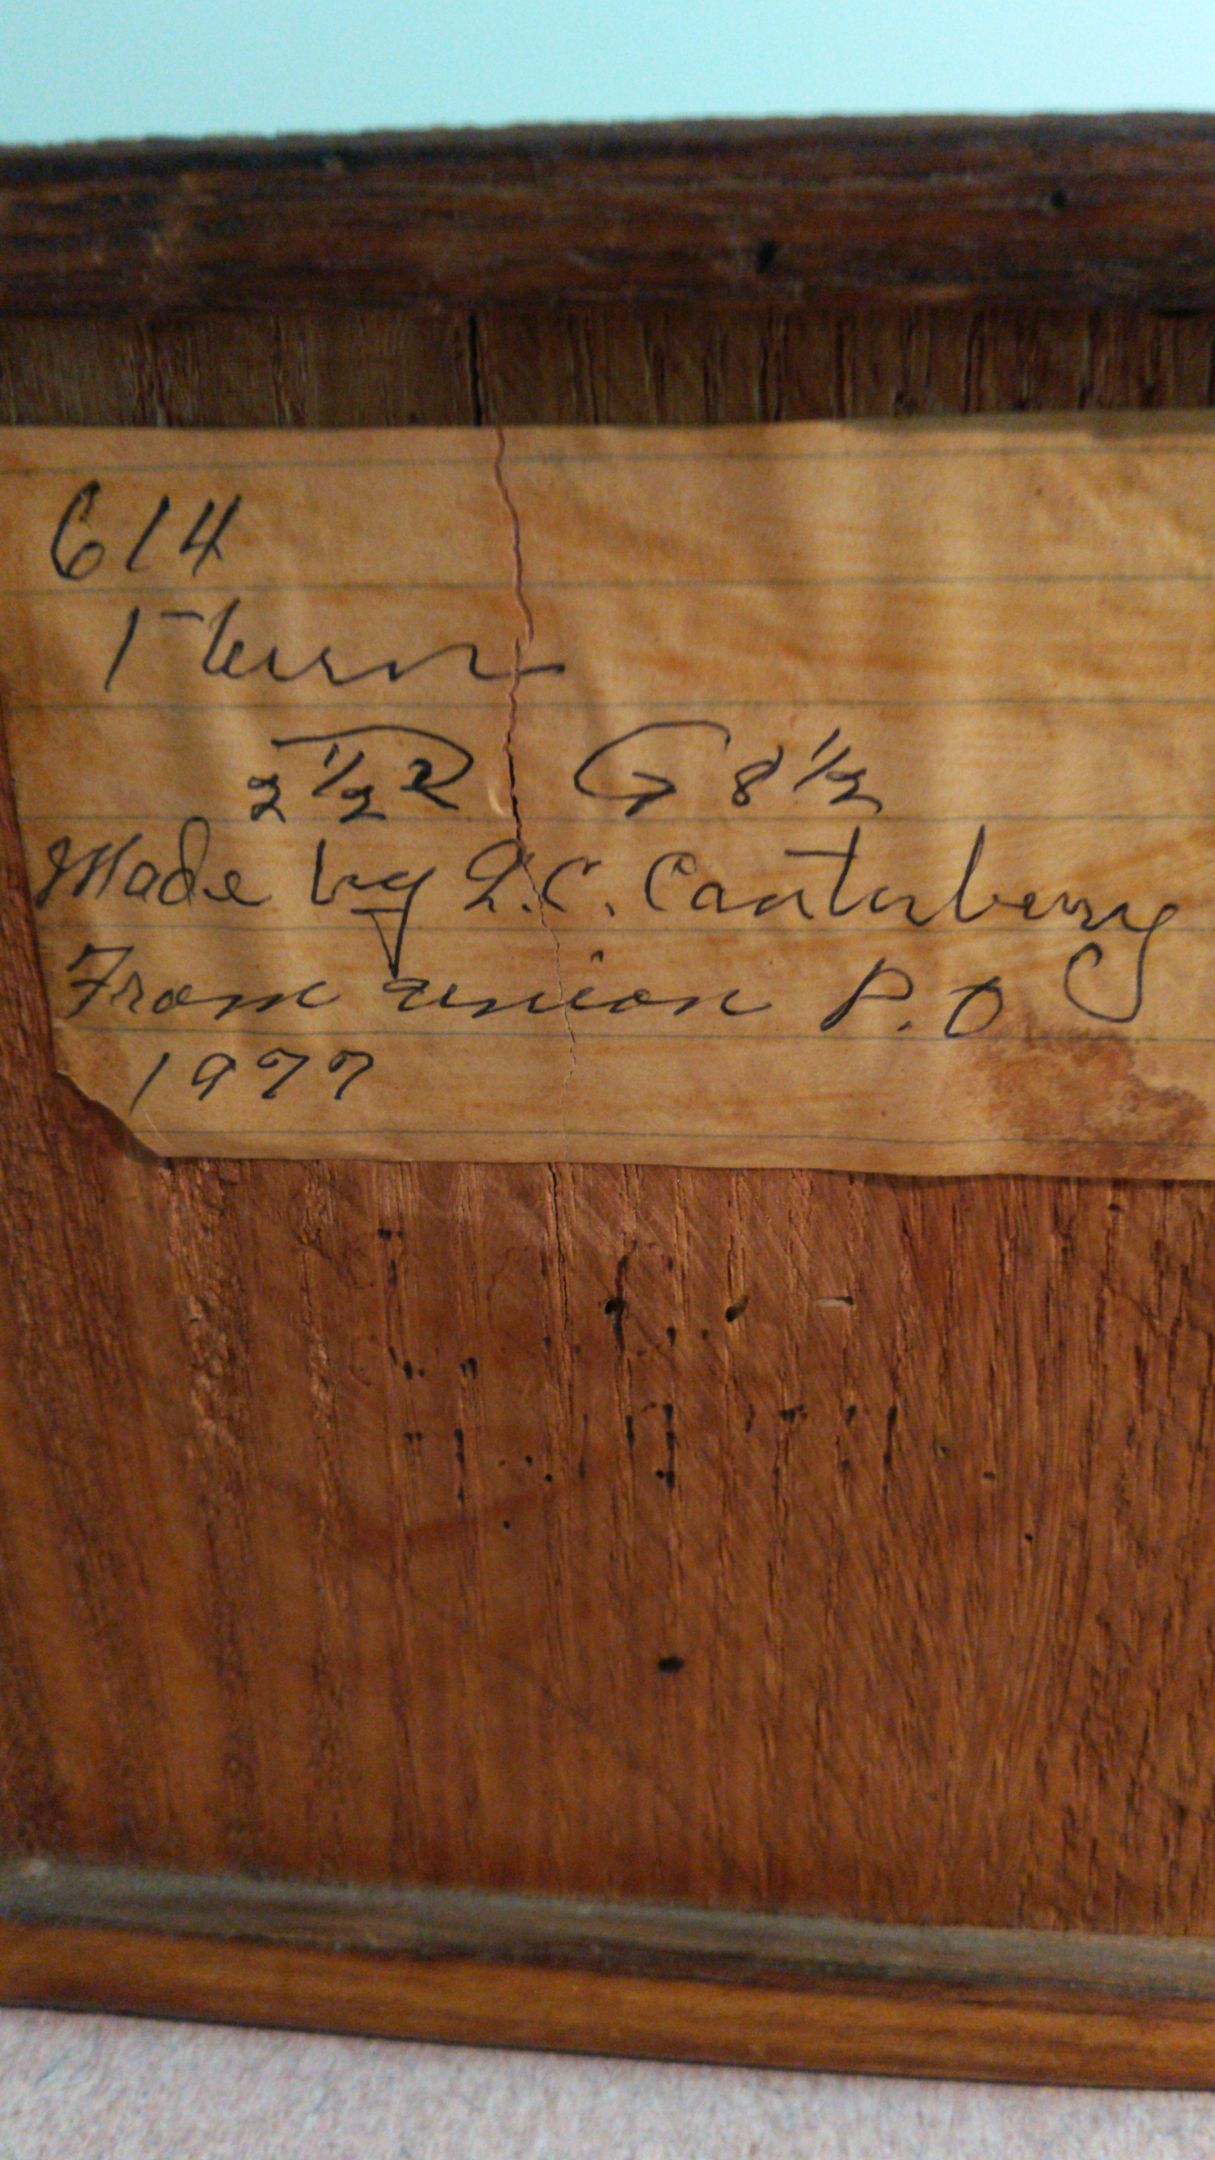 614
2 1/2 R G 8 1/2
Made by L.C. Canterberry
From union P.O
1977